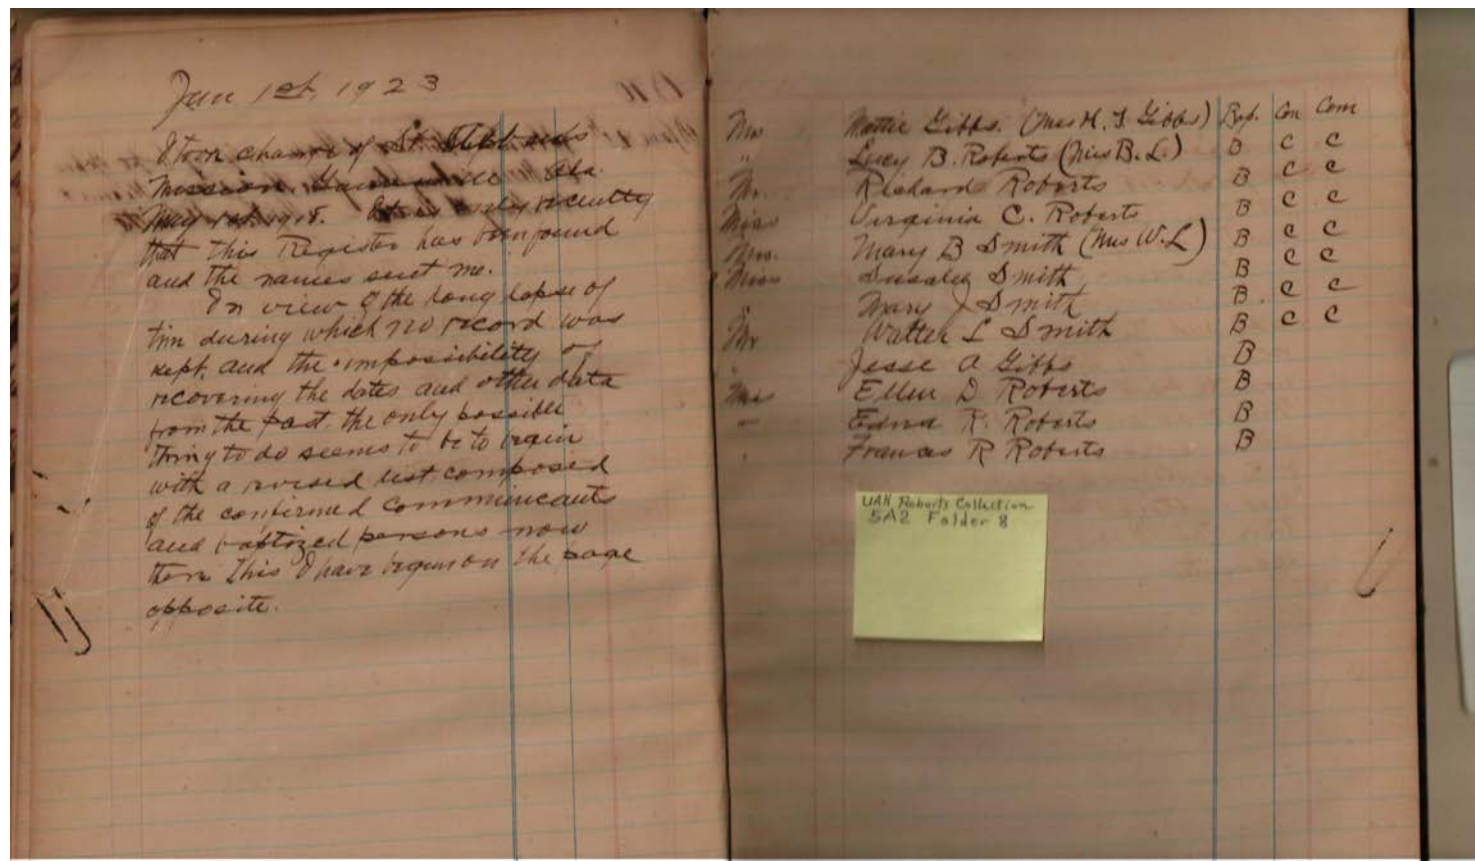 Jan 1st, 1923
I took charge of St. Stephens
Mission, Ala.
May 1st 1918. It is only recently
that this Register has been found
and the names sent me.
In view of the long lapse of
tim during which no record was
kept, and the impossibility of
recovering the dates and other data
from the past, the only possible
thing to do seems to be to begin
with a revised list composed
of the confirmed communicants
and baptized persons now
there. This I have begun on the page
opposite.
Bap. Con Com
Mrs Mattie Gibbs. (Mrs H. T Gibbs) B C C
" Lucy B. Roberts (Mrs B. L.) B C C
Mr. Richard Roberts B C C
Miss Virginia C. Roberts B C C
Mrs. Mary B Smith (Mrs W. L) B C C
Miss Smith B C C
" Mary J Smith B C C
Mr Walter L Smith B
" Jesse A Gibbs B
Miss Ellen D Roberts B
" Edna R. Roberts B
" Frances R Roberts
UAH Roberts Collection
5A2 Folder 8